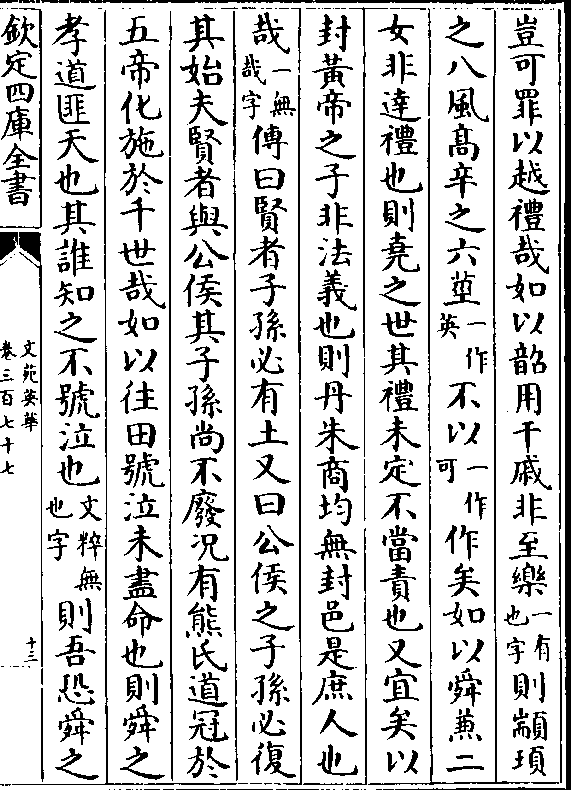 豈可罪以越禮哉如以韶用干戚非至樂一有也字則顓頊
之八風高辛之六莖一作英不以一作可作矣如以舜兼二
女非達禮也則堯之世其禮未定不當責也又宜矣以
封黃帝之子非法義也則丹朱商均無封邑是庶人也
哉一無哉字傳曰賢者子孫必有土又曰公侯之子孫必復
其始夫賢者與公侯其子孫尚不廢況有熊氏道冠於
五帝化施於千世哉如以往田號泣未盡命也則舜之
孝道匪天也其誰知之不號泣也文粹無也字則吾恐舜之
欽定四庫全書
文苑英華
卷三百七十七
十三